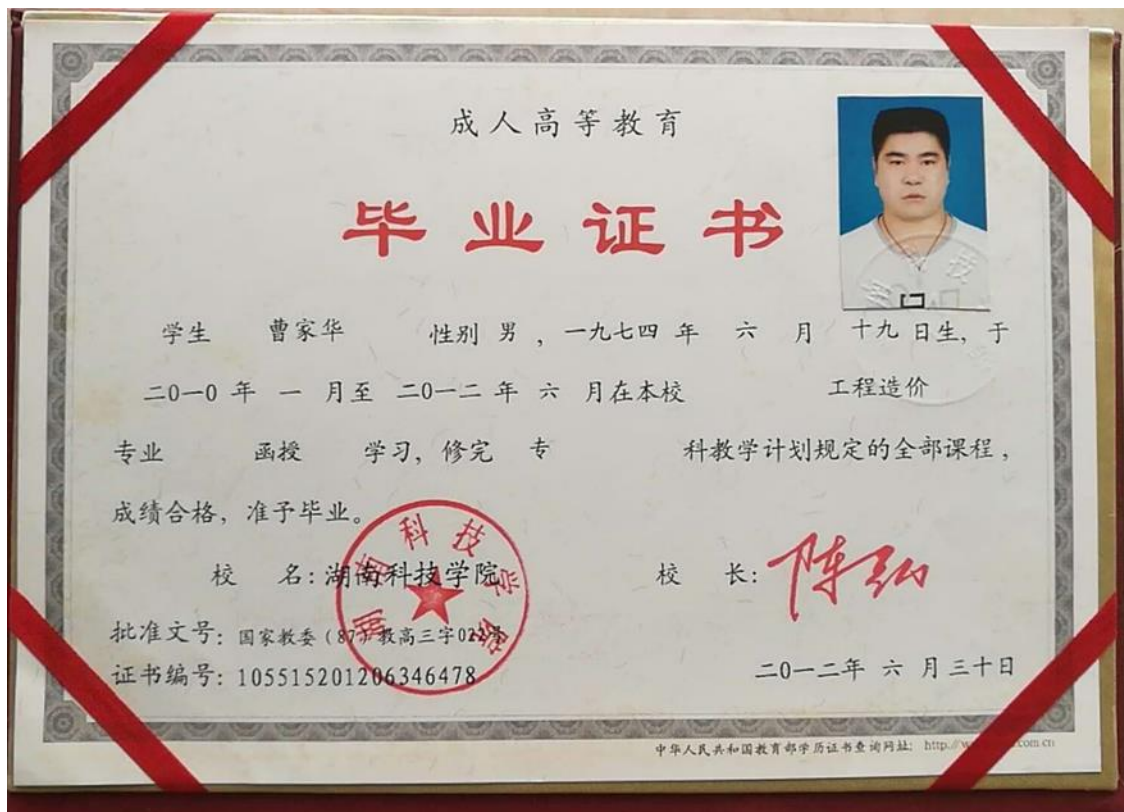 成人高等教育
毕业证书
学生 曹家华 性别 男 ，一九七四 年 六 月 十九 日生，于
二0一0 年 一 月至 二0一二 年 六 月在本校 工程造价
专业 函授 学习，修完 专 科教学计划规定的全部课程，
成绩合格，准予毕业。
校 名：湖南科技学院
校 长：陈弘
批准文号：国家教委（87）教高三字022号
证书编号：105515201206346478
二0一二年 六 月三十日
湖南科技学院
中华人民共和国教育部学历证书查询网址：